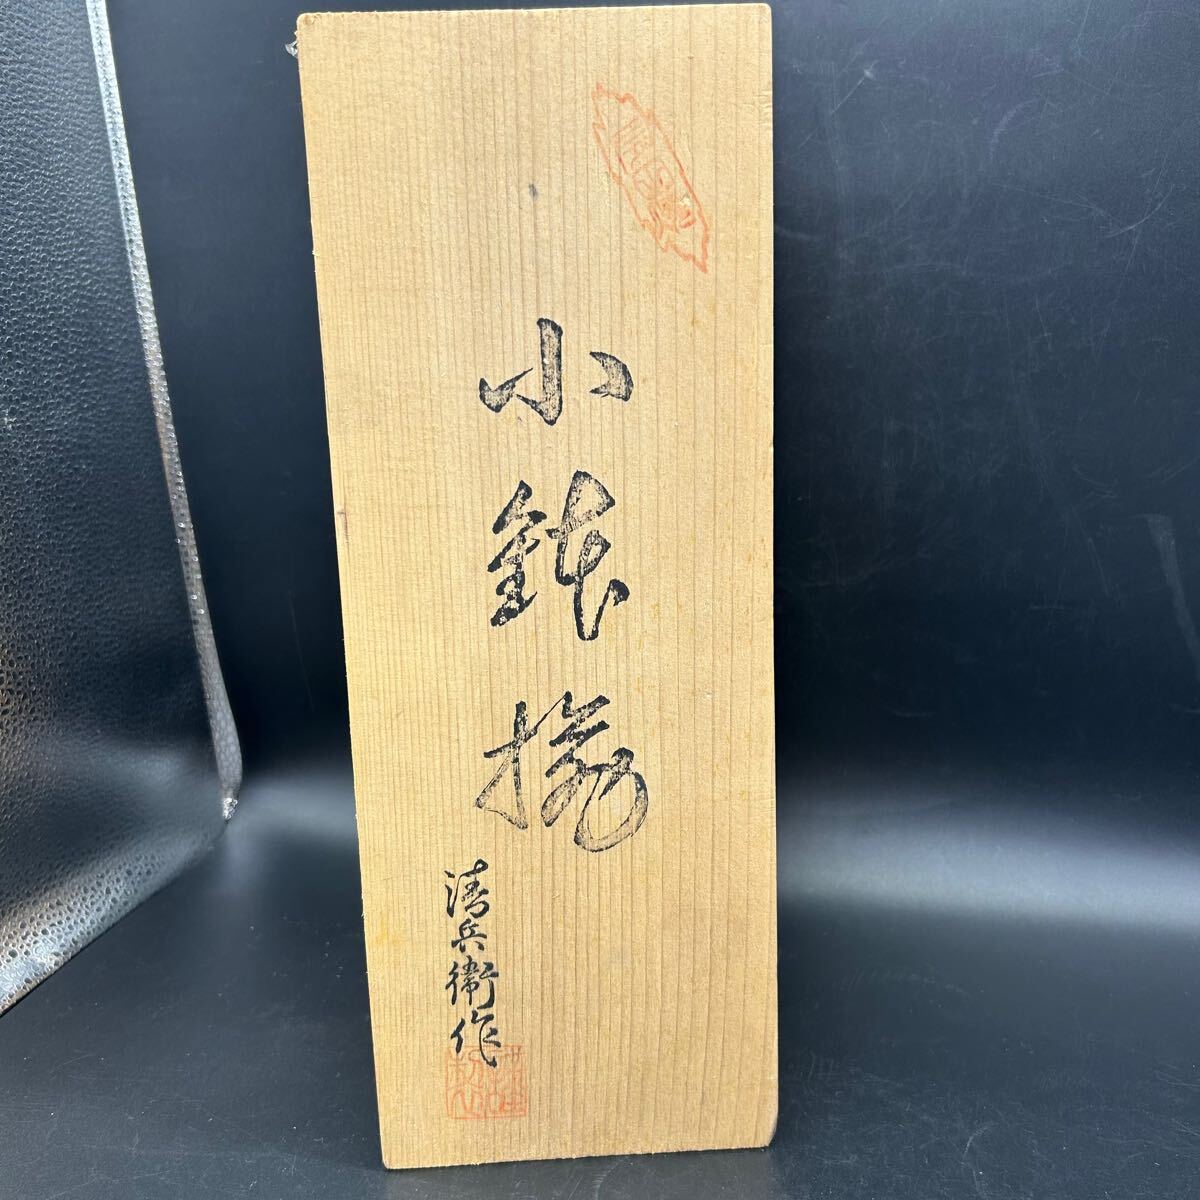 小鉢揃
清兵衛作